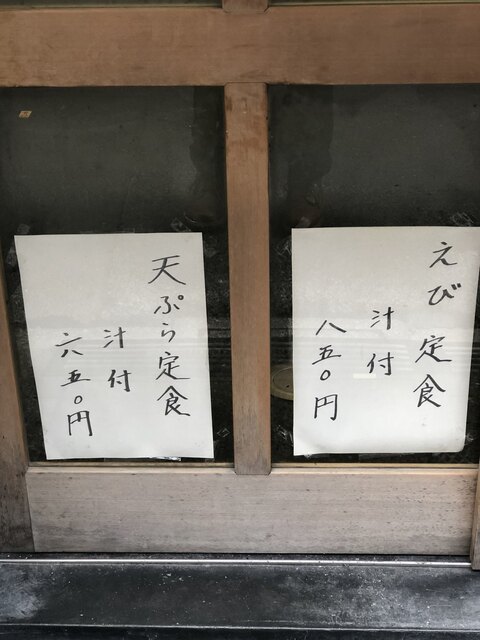 えび定食
汁付
八五〇円
天ぷら定食
汁付
六五〇円